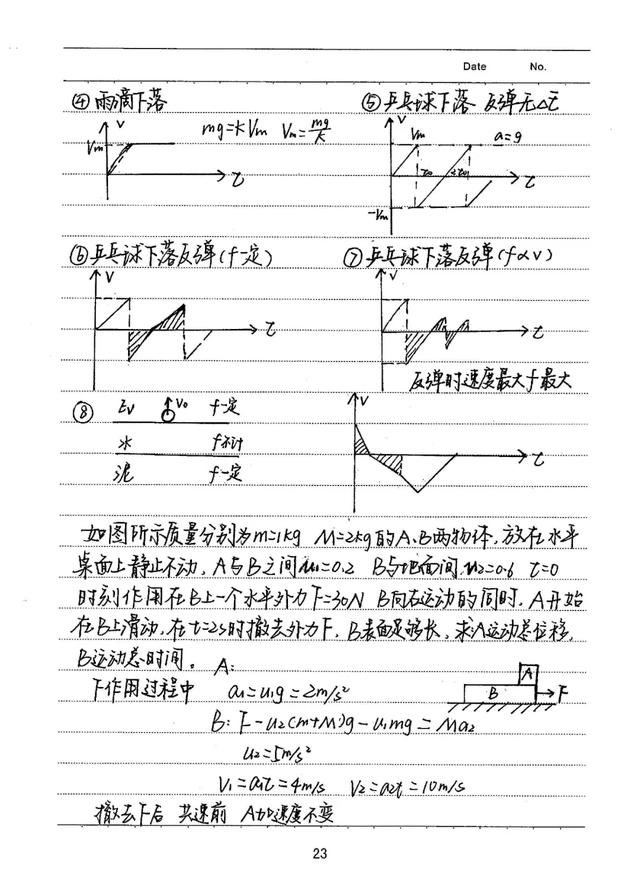 Date No.
④ 雨滴下落 ⑤ 乒乓球下落 反弹无Δt
V Vm mg=kVm Vm=mg/k t
V Vm a=g t₀ 2t₀ t -Vm
⑥ 乒乓球下落反弹(f一定) ⑦ 乒乓球下落反弹(f∝v)
V t V t
反弹时速度最大f最大
⑧ V₀ f一定
水 f不计
泥 f一定
V t
如图所示质量分别为m=1kg M=2kg的A.B两物体,放在水平
桌面上静止不动,A与B之间u₁=0.2 B与地面间u₂=0.6 t=0
时刻作用在B上一个水平外力F=30N B向右运动的同时,A开始
在B上滑动,在t=2s时撤去外力F,B表面足够长,求A运动总位移,
B运动总时间。 A:
F作用过程中 a₁=u₁g=2m/s²
A B F
B: F-u₂(m+M)g-u₁mg=Ma₂
u₂=5m/s²
V₁=a₁t=4m/s V₂=a₂t=10m/s
撤去F后 共速前 A加速度不变
23